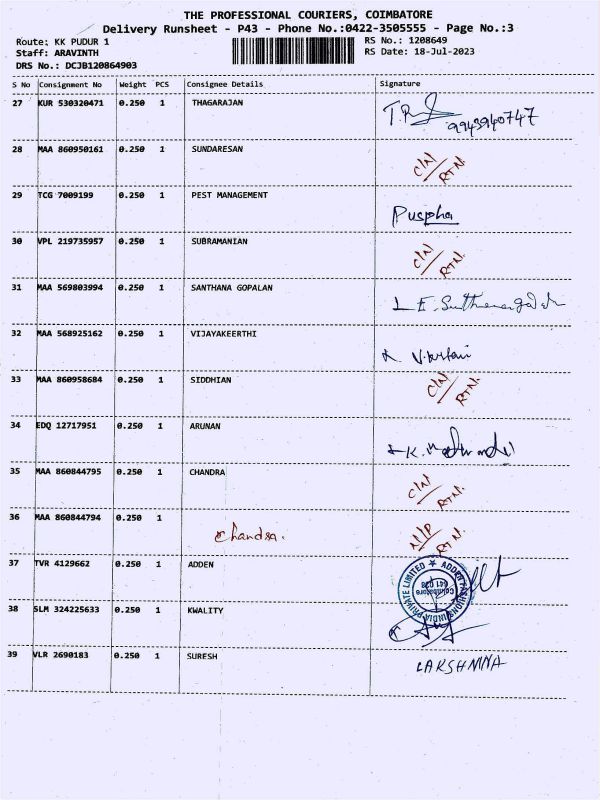 THE PROFESSIONAL COURIERS, COIMBATORE
Delivery Runsheet - P43 - Phone No.:0422-3505555 - Page No.:3
Route: KK PUDUR 1 RS No.: 1208649
Staff: ARAVINTH RS Date: 18-Jul-2023
DRS No.: DCJB120864903
S No Consignment No Weight PCS Consignee Details Signature
27 KUR 530320471 0.250 1 THAGARAJAN
9943940747
28 MAA 860950161 0.250 1 SUNDARESAN C/N/ RTN.
29 TCG 7009199 0.250 1 PEST MANAGEMENT Puspha
30 VPL 219735957 0.250 1 SUBRAMANIAN C/N/ RTN.
31 MAA 569803994 0.250 1 SANTHANA GOPALAN
32 MAA 568925162 0.250 1 VIJAYAKEERTHI
33 MAA 860958684 0.250 1 SIDDHIAN C/N/ RTN.
34 EDQ 12717951 0.250 1 ARUNAN
35 MAA 860844795 0.250 1 CHANDRA C/N/ RTN.
36 MAA 860844794 0.250 1 Chandra. RTN.
37 TVR 4129662 0.250 1 ADDEN
PRIVATE LIMITED ★ ADDEN FASHIONS INDIA
Coimbatore
38 SLM 324225633 0.250 1 KWALITY
39 VLR 2690183 0.250 1 SURESH LAKSHNINA